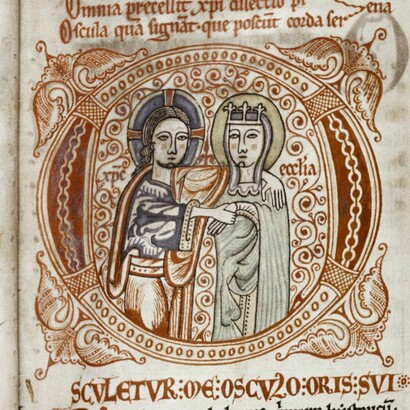 Omnia precellit xp̄i dilectio
Oscula quā signāt · que poscūt corda ser
xp̄c
eccl̄ia
O
SCVLETVR : ME : OSCVLO : ORIS : SVI :